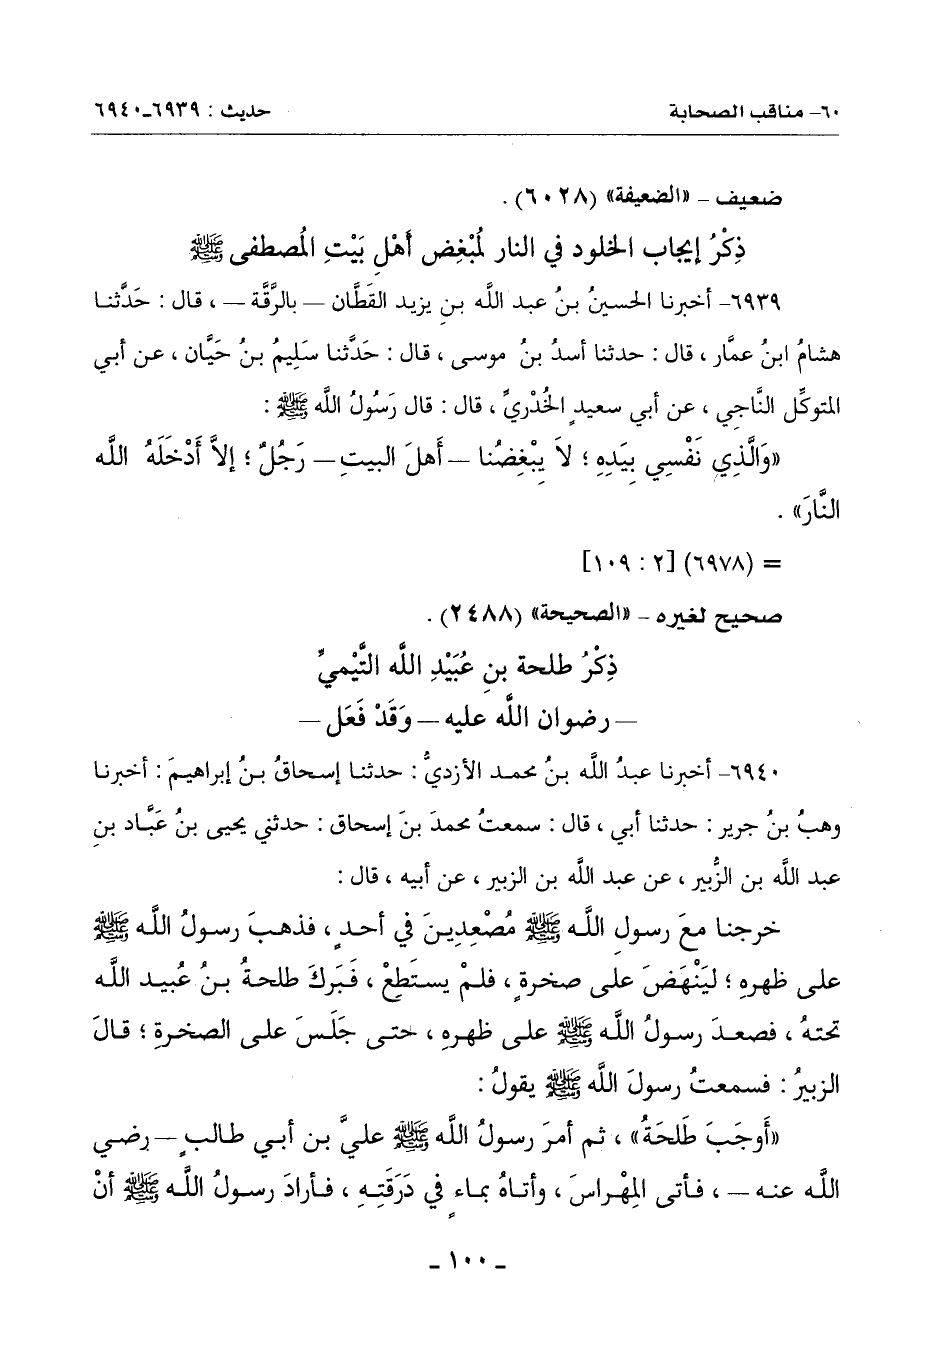 ٦٠- مناقب الصحابة حديث : ٦٩٣٩-٦٩٤٠
ضعيف – «الضعيفة» (٦٠٢٨) .
ذِكْرُ إيجاب الخلود في النار لمُبْغِض أَهْلِ بَيْتِ المُصطفى ﷺ
٦٩٣٩- أخبرنا الحسينُ بنُ عبد الله بنِ يزيد القَطَّان – بالرَّقَّة – ، قال : حَدَّثنا
هشامُ ابنُ عمَّار ، قال : حدثنا أسدُ بنُ موسى ، قال : حَدَّثنا سَلِيمُ بنُ حَيَّان ، عن أبي
المتوكِّل النَّاجي ، عن أبي سعيدٍ الخُدْريِّ ، قال : قال رَسُولُ الله ﷺ :
«وَالَّذِي نَفْسِي بِيَدِهِ ؛ لاَ يبْغِضُنا – أَهلَ البيتِ – رَجُلٌ ؛ إلاَّ أَدْخَلَهُ الله
النَّارَ» .
= (٦٩٧٨) [٢ : ١٠٩]
صحيح لغيره – «الصحيحة» (٢٤٨٨) .
ذِكْرُ طلحة بنِ عُبَيْدِ الله التَّيْميِّ
– رضوان الله عليه – وَقَدْ فَعَل –
٦٩٤٠- أخبرنا عبدُ الله بنُ محمد الأزديُّ : حدثنا إسحاقُ بنُ إبراهيمَ : أخبرنا
وهبُ بنُ جرير : حدثنا أبي ، قال : سمعتُ محمدَ بنَ إسحاق : حدثني يحيى بنُ عَبَّاد بنِ
عبد الله بن الزُّبير ، عن عبد الله بن الزبير ، عن أبيه ، قال :
خرجنا معَ رسولِ الله ﷺ مُصْعِدِينَ في أحدٍ ، فذهبَ رسولُ الله ﷺ
على ظهرِهِ ؛ ليَنْهَضَ على صخرةٍ ، فلمْ يستَطِعْ ، فَبَرَكَ طلحةُ بنُ عُبيد الله
تحتهُ ، فصعدَ رسولُ الله ﷺ على ظهرِه ، حتى جَلَسَ على الصخرةِ ؛ قالَ
الزبيرُ : فسمعتُ رسولَ الله ﷺ يقولُ :
«أَوجَبَ طَلحَةُ» ، ثم أمرَ رسولُ الله ﷺ عليَّ بن أبي طالبٍ – رضي
الله عنه – ، فأتى المِهْراسَ ، وأتاهُ بماءٍ في دَرَقَتِهِ ، فأرادَ رسولُ الله ﷺ أنْ
- ١٠٠ -